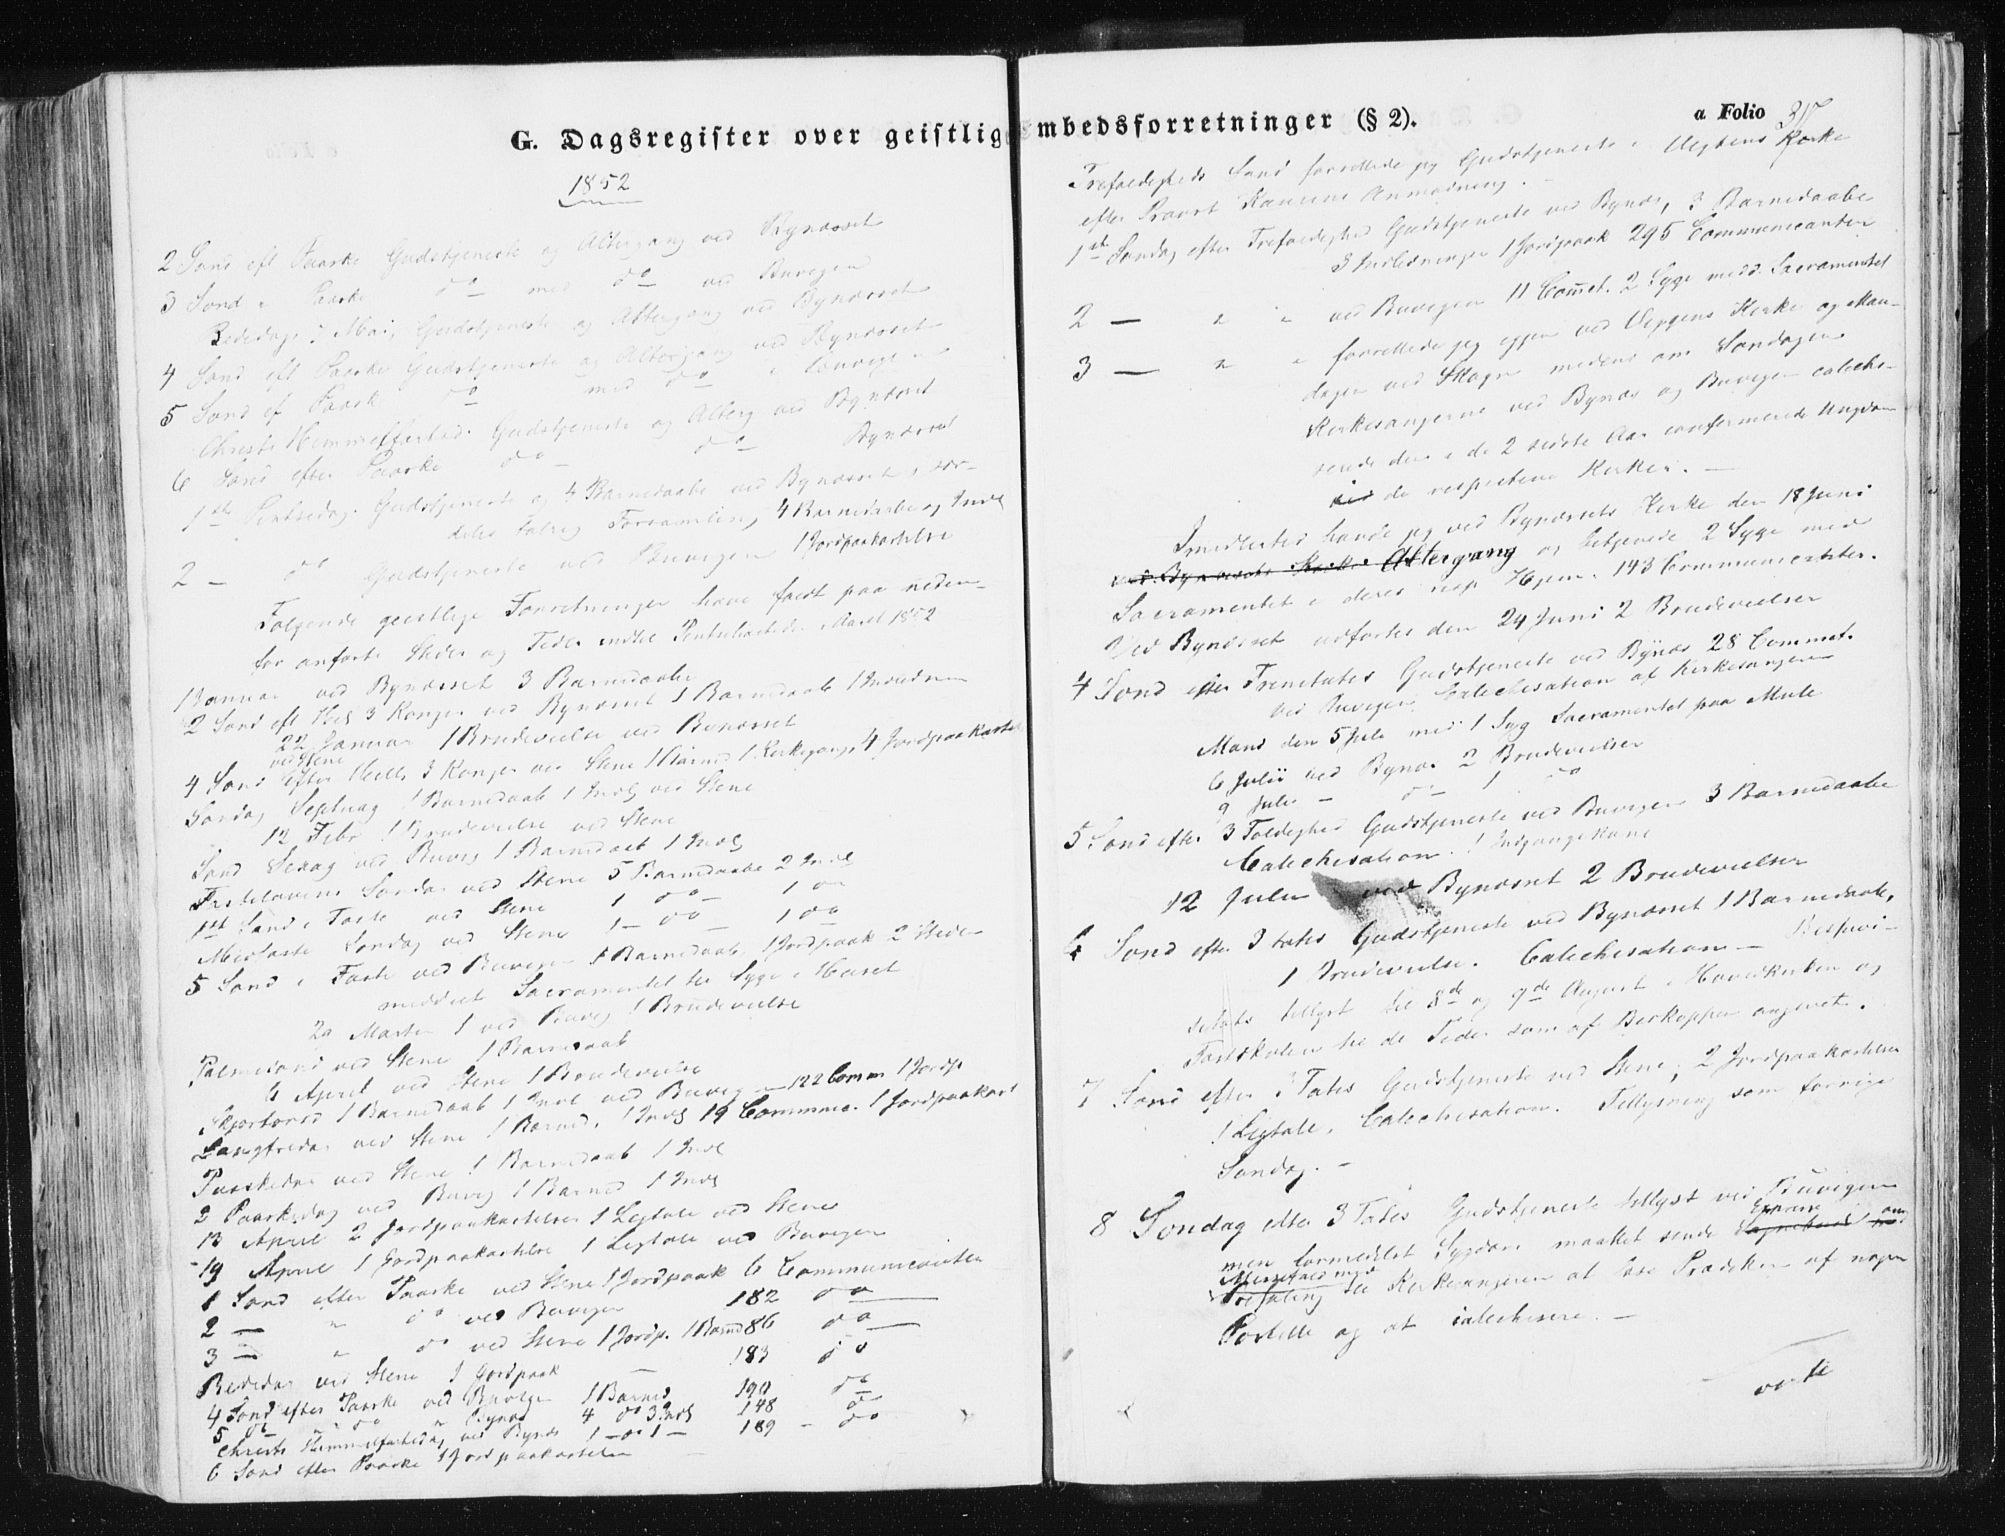 G. Dagsregister over geistlig Embedsforretninger (§ 2).
1852
2 Sønd eft Paaske Gudstjeneste og Altergang ved Bynæsset
3 Sønd e Paaske do med do ved Buvigen
Bededag i Mai, Gudstjeneste og Altergang ved Bynæsset
4 Sønd eft Paaske Gudstjeneste og Altergang ved Bynæsset
5 Sønd ef Paask do med do i Buvigen
Christi Himmelfartsd. Gudstjeneste og Alterg ved Bynæsset
6 Sønd efter Paaske do do Bynæsset
1ste Pintsedag. Gudstjeneste og 4 Barnedaabe ved Bynæsset, sær-
deles talrig Forsamling, 4 Barnedaabe og Indl
2 — do Gudstjeneste ved Buvigen 1 Jordpaakastelse
Følgende geistlige Forretninger have fundet paa neden-
for anførte Steder og Tider indtil Pintsehøitiden Aaret 1852
1 Januar ved Bynæsset 3 Barnedaabe
2 Sønd eft Hell 3 Konger ved Bynæsset 1 Barnedaab 1 Introduc
22 Januar 1 Brudevielse ved Bynæsset
ved Stene
4 Sønd efter Hell 3 Konger ved Stene 1 Barned 1 Kirkegang, 4 Jordpaakastel
Søndag Septuag 1 Barnedaab 1 Indl ved Stene
12 Febr 1 Brudevielse ved Stene
Sønd Sexag ved Buvig 1 Barnedaab 1 Indl
Fastelavens Søndag ved Stene 5 Barnedaabe 2 Indl
1ste Sønd i Faste ved Stene 1 do 1 do
Midfaste Søndag ved Stene 1 — do — 1 do
5 Sønd i Faste ved Buvigen 1 Barnedaab 1 Jordpaak 2 Steder
meddelt Sacramentet til Syge i Huset
20 Marts 1 ved Buvig 1 Brudevielse
Palmesønd ved Stene 1 Barnedaab
6 April ved Stene 1 Brudevielse
Skjærtorsd 1 Barnedaab 1 Indl ved Buvigen 122 Comm 1 Jordp
Langfredag ved Stene 1 Barned, 1 Indl 19 Commun. 1 Jordpaakast
Paaskedag ved Stene 1 Barnedaab 1 Indl
2 Paaskedag ved Buvig 1 Barned 1 Indl
13 April 2 Jordpaakastelser 1 Ligtale ved Stene
19 April 1 Jordpaakastelse 1 Ligtale ved Buvigen
1 Sønd efter Paaske ved Stene 1 Jordpaak 6 Communicanter
2 — " do ved Buvigen 182 do
3 — " do ved Stene 1 Jordp. 1 Barned 86 do
Bededag ved Stene 1 Jordpaak — 183 do
4 Sønd efter Paaske ved Buvigen 1 Barned 190 do
5 do " do " Bynæs 4 do 3 Indl 148 do
Christi Himmelfartsdag ved Bynæs 1 — do 1 — 189 — do
6 Sønd efter Paaske 1 Jordpaakastelse
a Folio 315
Trefoldigheds Sønd forrettede jeg Gudstjeneste i Kirke
efter Provst Anmodning. —
1ste Søndag efter Trefoldighed Gudstjeneste ved Bynæs, 3 Barnedaabe
3 Indledninger 1 Jordpaak 295 Communicanter
2 — " " ved Buvigen 11 Comct. 2 Syge medd. Sacramentet
3 — " " forrettede jeg igjen ved Kirke og Man-
dagen ved Skogn medens om Søndagen
Kirkesangerne ved Bynæs og Buvigen cateche-
serede den i de 2 sidste Aar confirmerede Ungdom
ved de respective Kirker. —
Imidlertid havde jeg ved Bynæssets Kirke den 18 Juni
ved Bynæssets Kirke Altergang og betjente 2 Syge med
Sacramentet i deres resp Hjem. 143 Communicanter.
Ved Bynæsset udførtes den 24 Juni 2 Brudevielser
4 Sønd efter Trinitatis Gudstjeneste ved Bynæs 28 Commct.
ved Buvigen Catechisation af Kirkesangeren
Mand den 5 Juli med 1 Syg Sacramentet paa Mule
6 Julii ved Bynæs 2 Brudevielser
9 Juli — do — 1 do
5 Sønd efter 3 Foldighed Gudstjeneste ved Buvigen 3 Barnedaabe
Catechisation. 1 Indgangskone
12 Julii ved Bynæsset 2 Brudevielser
6 Sønd efter 3 tatis Gudstjeneste ved Bynæsset 1 Barnedaab,
1 Brudevielse. Catechisation —
tillyst til 8de og 9de August i Hovedkirken og
Fastskolen til de Tider som af Biskoppen angivet.
7 Sønd efter 3 Tatis Gudstjeneste ved Stene, 2 Jordpaakastelser
1 Ligtale, Catechisation. Tillysning som forrige
Søndag. —
8 Søndag efter 3 Tatis Gudstjeneste tillyst ved Buvigen
men formedelst Sygdom maattet sende Expresse
til Kirkesangeren at læse Prædiken af nogen
Postille og at catechisere. —
verte